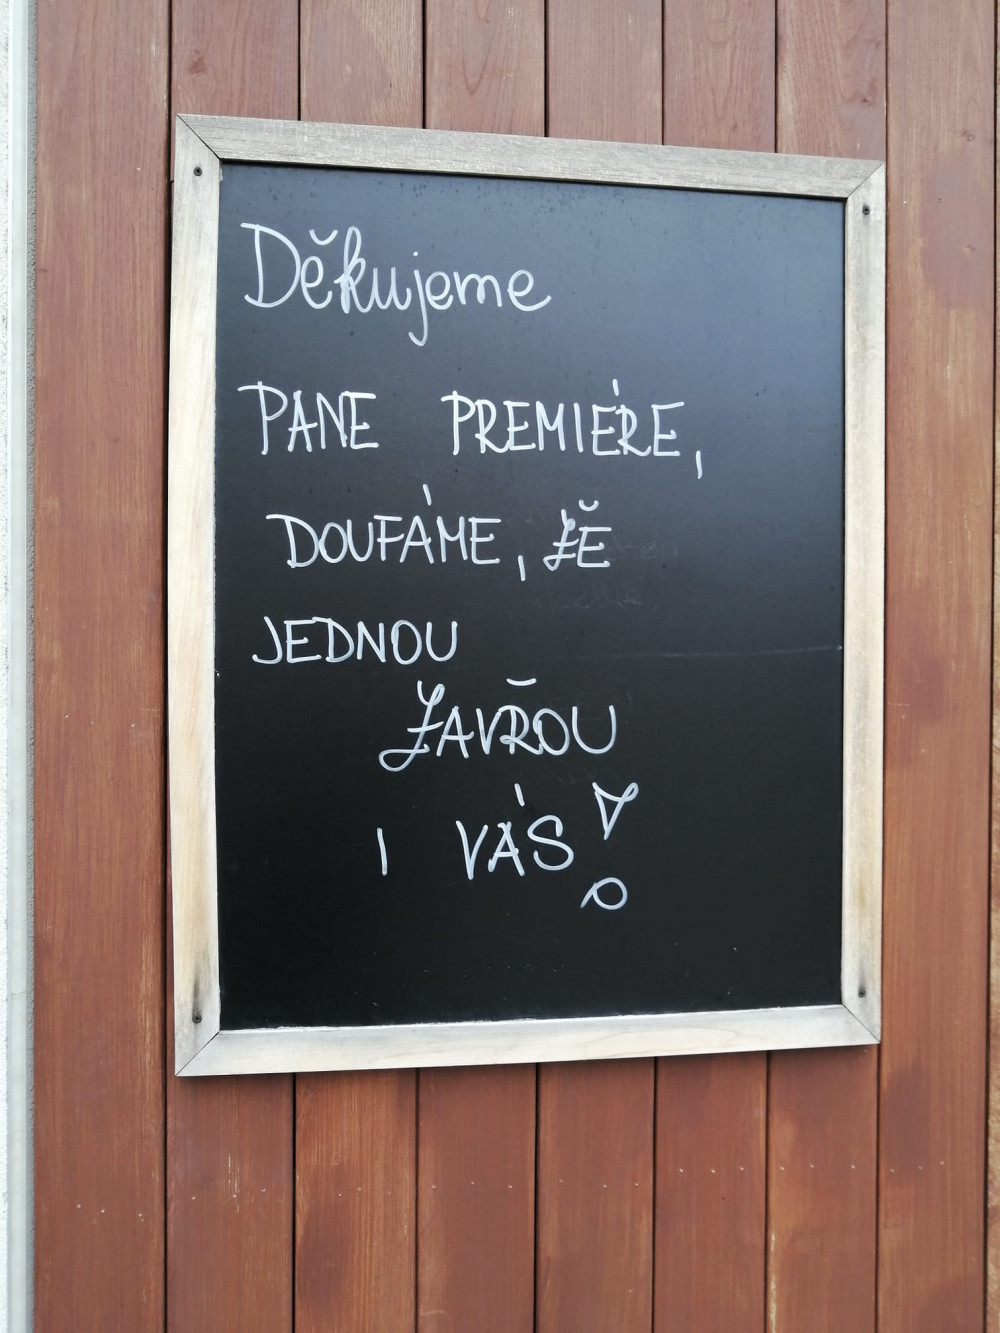 Děkujeme
PANE PREMIÉRE,
DOUFÁME, ŽE
JEDNOU
ZAVŘOU
I VÁS!